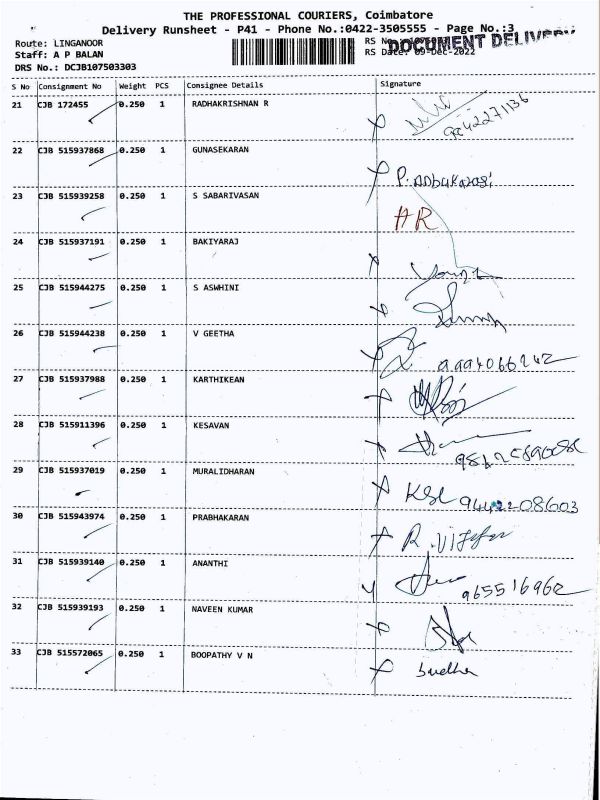 THE PROFESSIONAL COURIERS, Coimbatore
Delivery Runsheet - P41 - Phone No.:0422-3505555 - Page No.:3
Route: LINGANOOR
DOCUMENT DELIVERY
Staff: A P BALAN
RS Date: 09-Dec-2022
DRS No.: DCJB107503303
S No Consignment No Weight PCS Consignee Details Signature
21 CJB 172455 0.250 1 RADHAKRISHNAN R
22 CJB 515937868 0.250 1 GUNASEKARAN
23 CJB 515939258 0.250 1 S SABARIVASAN
HR
24 CJB 515937191 0.250 1 BAKIYARAJ
25 CJB 515944275 0.250 1 S ASWHINI
26 CJB 515944238 0.250 1 V GEETHA
27 CJB 515937988 0.250 1 KARTHIKEAN
28 CJB 515911396 0.250 1 KESAVAN
29 CJB 515937019 0.250 1 MURALIDHARAN
KSL 9442208603
30 CJB 515943974 0.250 1 PRABHAKARAN
31 CJB 515939140 0.250 1 ANANTHI
32 CJB 515939193 0.250 1 NAVEEN KUMAR
33 CJB 515572065 0.250 1 BOOPATHY V N
Sudha